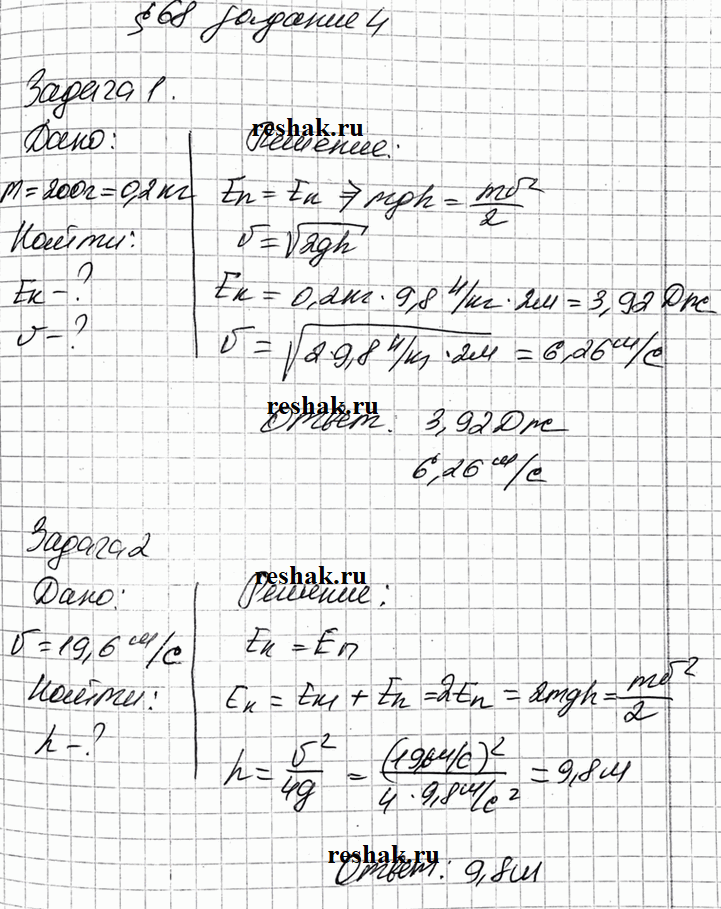 § 68 задание 4
Задача 1.
Дано:
m = 200г = 0,2 кг
Найти:
Eк - ?
v - ?
reshak.ru
Решение:
Eп = Eк ⇒ mgh = mv²/2
v = √2gh
Eк = 0,2кг · 9,8 Н/кг · 2м = 3,92 Дж
v = √2 · 9,8 Н/кг · 2м = 6,26 м/с
reshak.ru
Ответ: 3,92 Дж
6,26 м/с
Задача 2
Дано:
v = 19,6 м/с
Найти:
h - ?
reshak.ru
Решение:
Eк = Eп
Eк = Eк1 + Eп = 2Eп = 2mgh = mv²/2
h = v²/4g = (19,6м/с)²/4 · 9,8м/с² = 9,8м
reshak.ru
Ответ: 9,8м